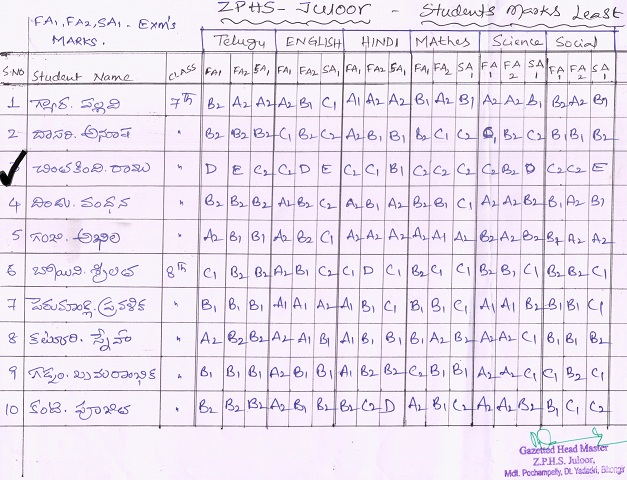 ZPHS- Juloor - Students Marks Least
FA1, FA2, SA1 - Exm's
MARKS.
Telugu ENGLISH HINDI Mathes Science Social
S.NO Student Name CLASS FA1 FA2 SA1 FA1 FA2 SA1 FA1 FA2 SA1 FA1 FA2 SA1 FA1 FA2 SA1 FA1 FA2 SA1
1 గ్యార. పల్లవి 7th B2 A2 A2 A2 B1 C1 A1 A2 A2 B1 A2 B1 A2 A2 B1 B2 A2 B1
2 దాసరి. అనూష " B2 B2 B2 C1 B2 C2 A2 B1 B1 B2 C1 C2 C1 B2 C2 B1 B1 B2
చింతకింది. రాము " D E C2 C2 D E C2 C1 B1 C2 C2 C2 C2 B2 D C2 C2 E
4 దిండు. వందన " B2 B2 B2 A2 B2 C2 A2 B1 A2 B2 B2 C1 A2 A2 B2 B1 A2 B1
5 గంజి. అఖిల " A2 B1 B1 A2 B2 C1 A2 A2 A2 A2 A1 A2 B2 A2 B2 B1 A2 A2
6 శ్రీలత 8th C1 B2 B2 A2 B1 C2 C1 D C1 B2 C1 C1 B2 B1 C1 B2 B2 C1
7 పెరుమాండ్ల. ప్రవళిక " B1 B1 B1 A1 A1 A2 A1 B1 C1 B1 B1 C1 A1 A1 B2 B1 B1 C1
8 కట్కూరి. స్నేహా " A2 B2 B2 A2 A1 B1 A1 B1 B1 B1 A2 B2 A2 A2 C1 B1 B1 B2
9 గడ్డం. " B1 B1 B1 A2 B1 B1 A1 B2 B2 C2 B1 B1 A2 A2 C1 C1 B2 C1
10 కంటె. పూజిత " B2 B2 B2 A2 B1 B2 B2 C2 D A2 B1 C2 A2 A2 B2 B1 C1 C2
Gazetted Head Master
Z.P.H.S. Juloor,
Mdl. Pochampally, Dt. Yadadri, Bhongir